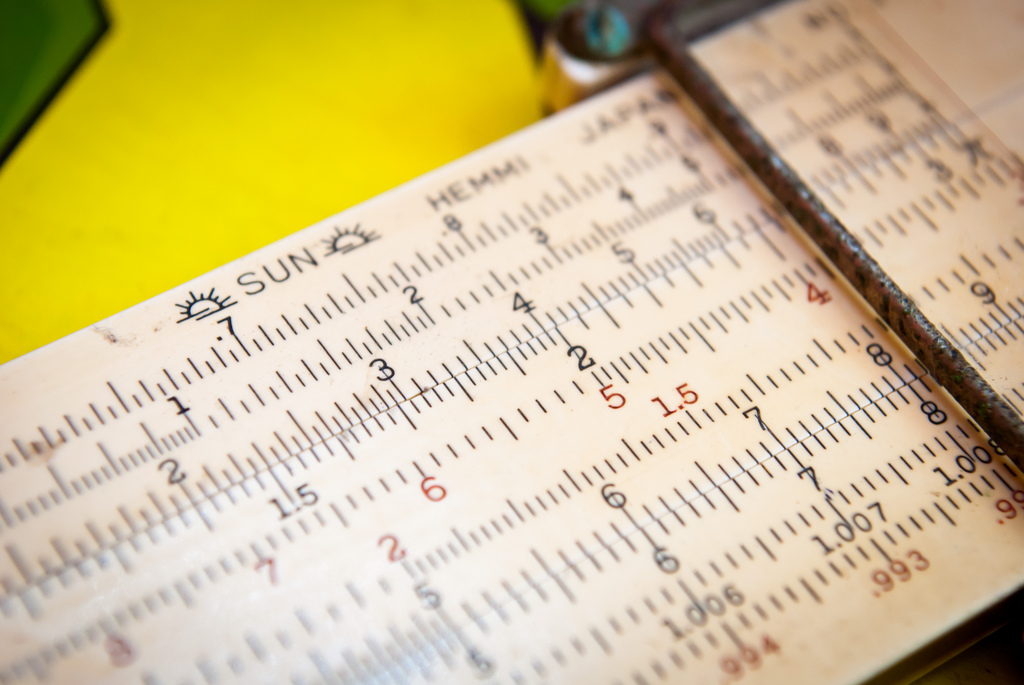 SUN HEMMI JAPAN
.7 8 9
1 2 3 4 5
2 3 4 5 6
8 7 6 5 4
1.5 2 3
2 1.5
5 6 7 8 9
5 6 7 8
1.006 1.007 1.008
.994 .993 .99